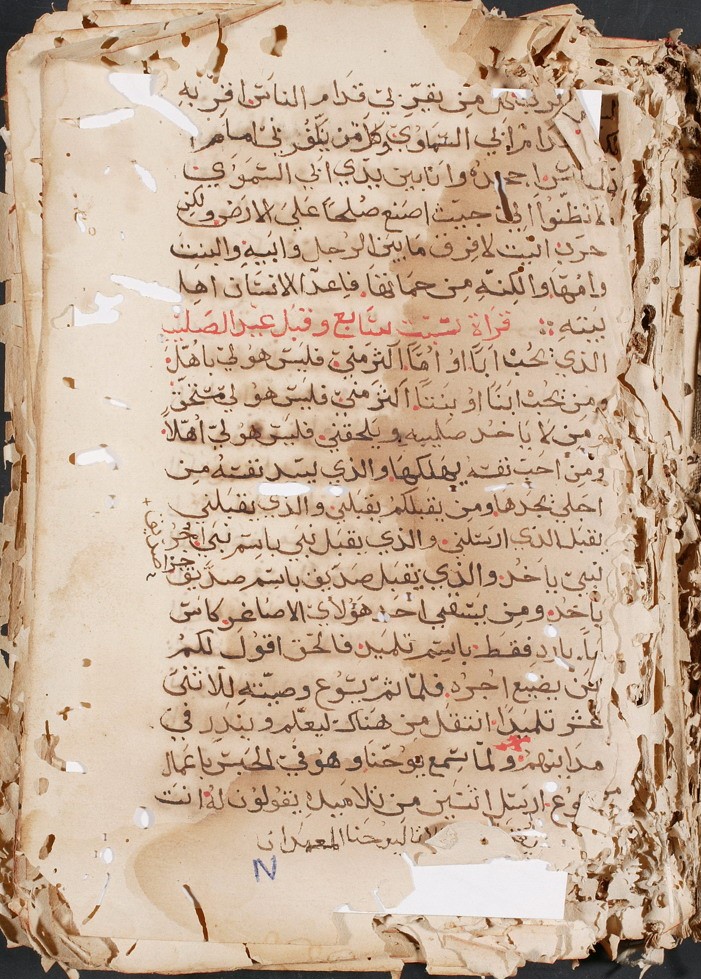 من يقرّ بي قدام الناس اقرّ به
قدام ابي السماوي وكل من يكفر بي امام
الناس اجحده وانا بين يدي ابي السموي
لا تظنوا اني جيت اصنع صلحاً على الارض ولكن
حرب اتيت لافرق ما بين الرجل وابيه والبنت
وامها والكنه من حماتها فاعدا الانسان اهل
بيته قراة سبت سابع وقبل عيد الصليب
الذي يحب اباً او امّاً اكثر منّي فليس هو لي باهل
ومن يحب ابناً او بنتاً اكثر منّي فليس هو لي مستحق
ومن لا ياخد صليبه ويلحقني فليس هو لي اهلاً
ومن احب نفسه يهلكها والذي يبيد نفسه من
اجلي يجدها ومن يقبلكم يقبلني والذي يقبلني
يقبل الذي ارسلني والذي يقبل نبي باسم نبي اجر
نبي ياخد والذي يقبل صدّيق باسم صدّيق
ياخد ومن يسقي احد هولاي الاصاغر كاس
بارد فقط باسم تلميد فالحق اقول لكم
لن يضيع اجره فلمّا تمّ يسوع وصيته للاثني
عشر تلميدا انتقل من هناك ليعلّم ويندر في
مداينهم ولما سمع يوحنا وهو في الحبس باعمال
يسوع ارسل اثنين من تلاميده يقولون له انت
يوحنا المعمدان
اجر صديق
N